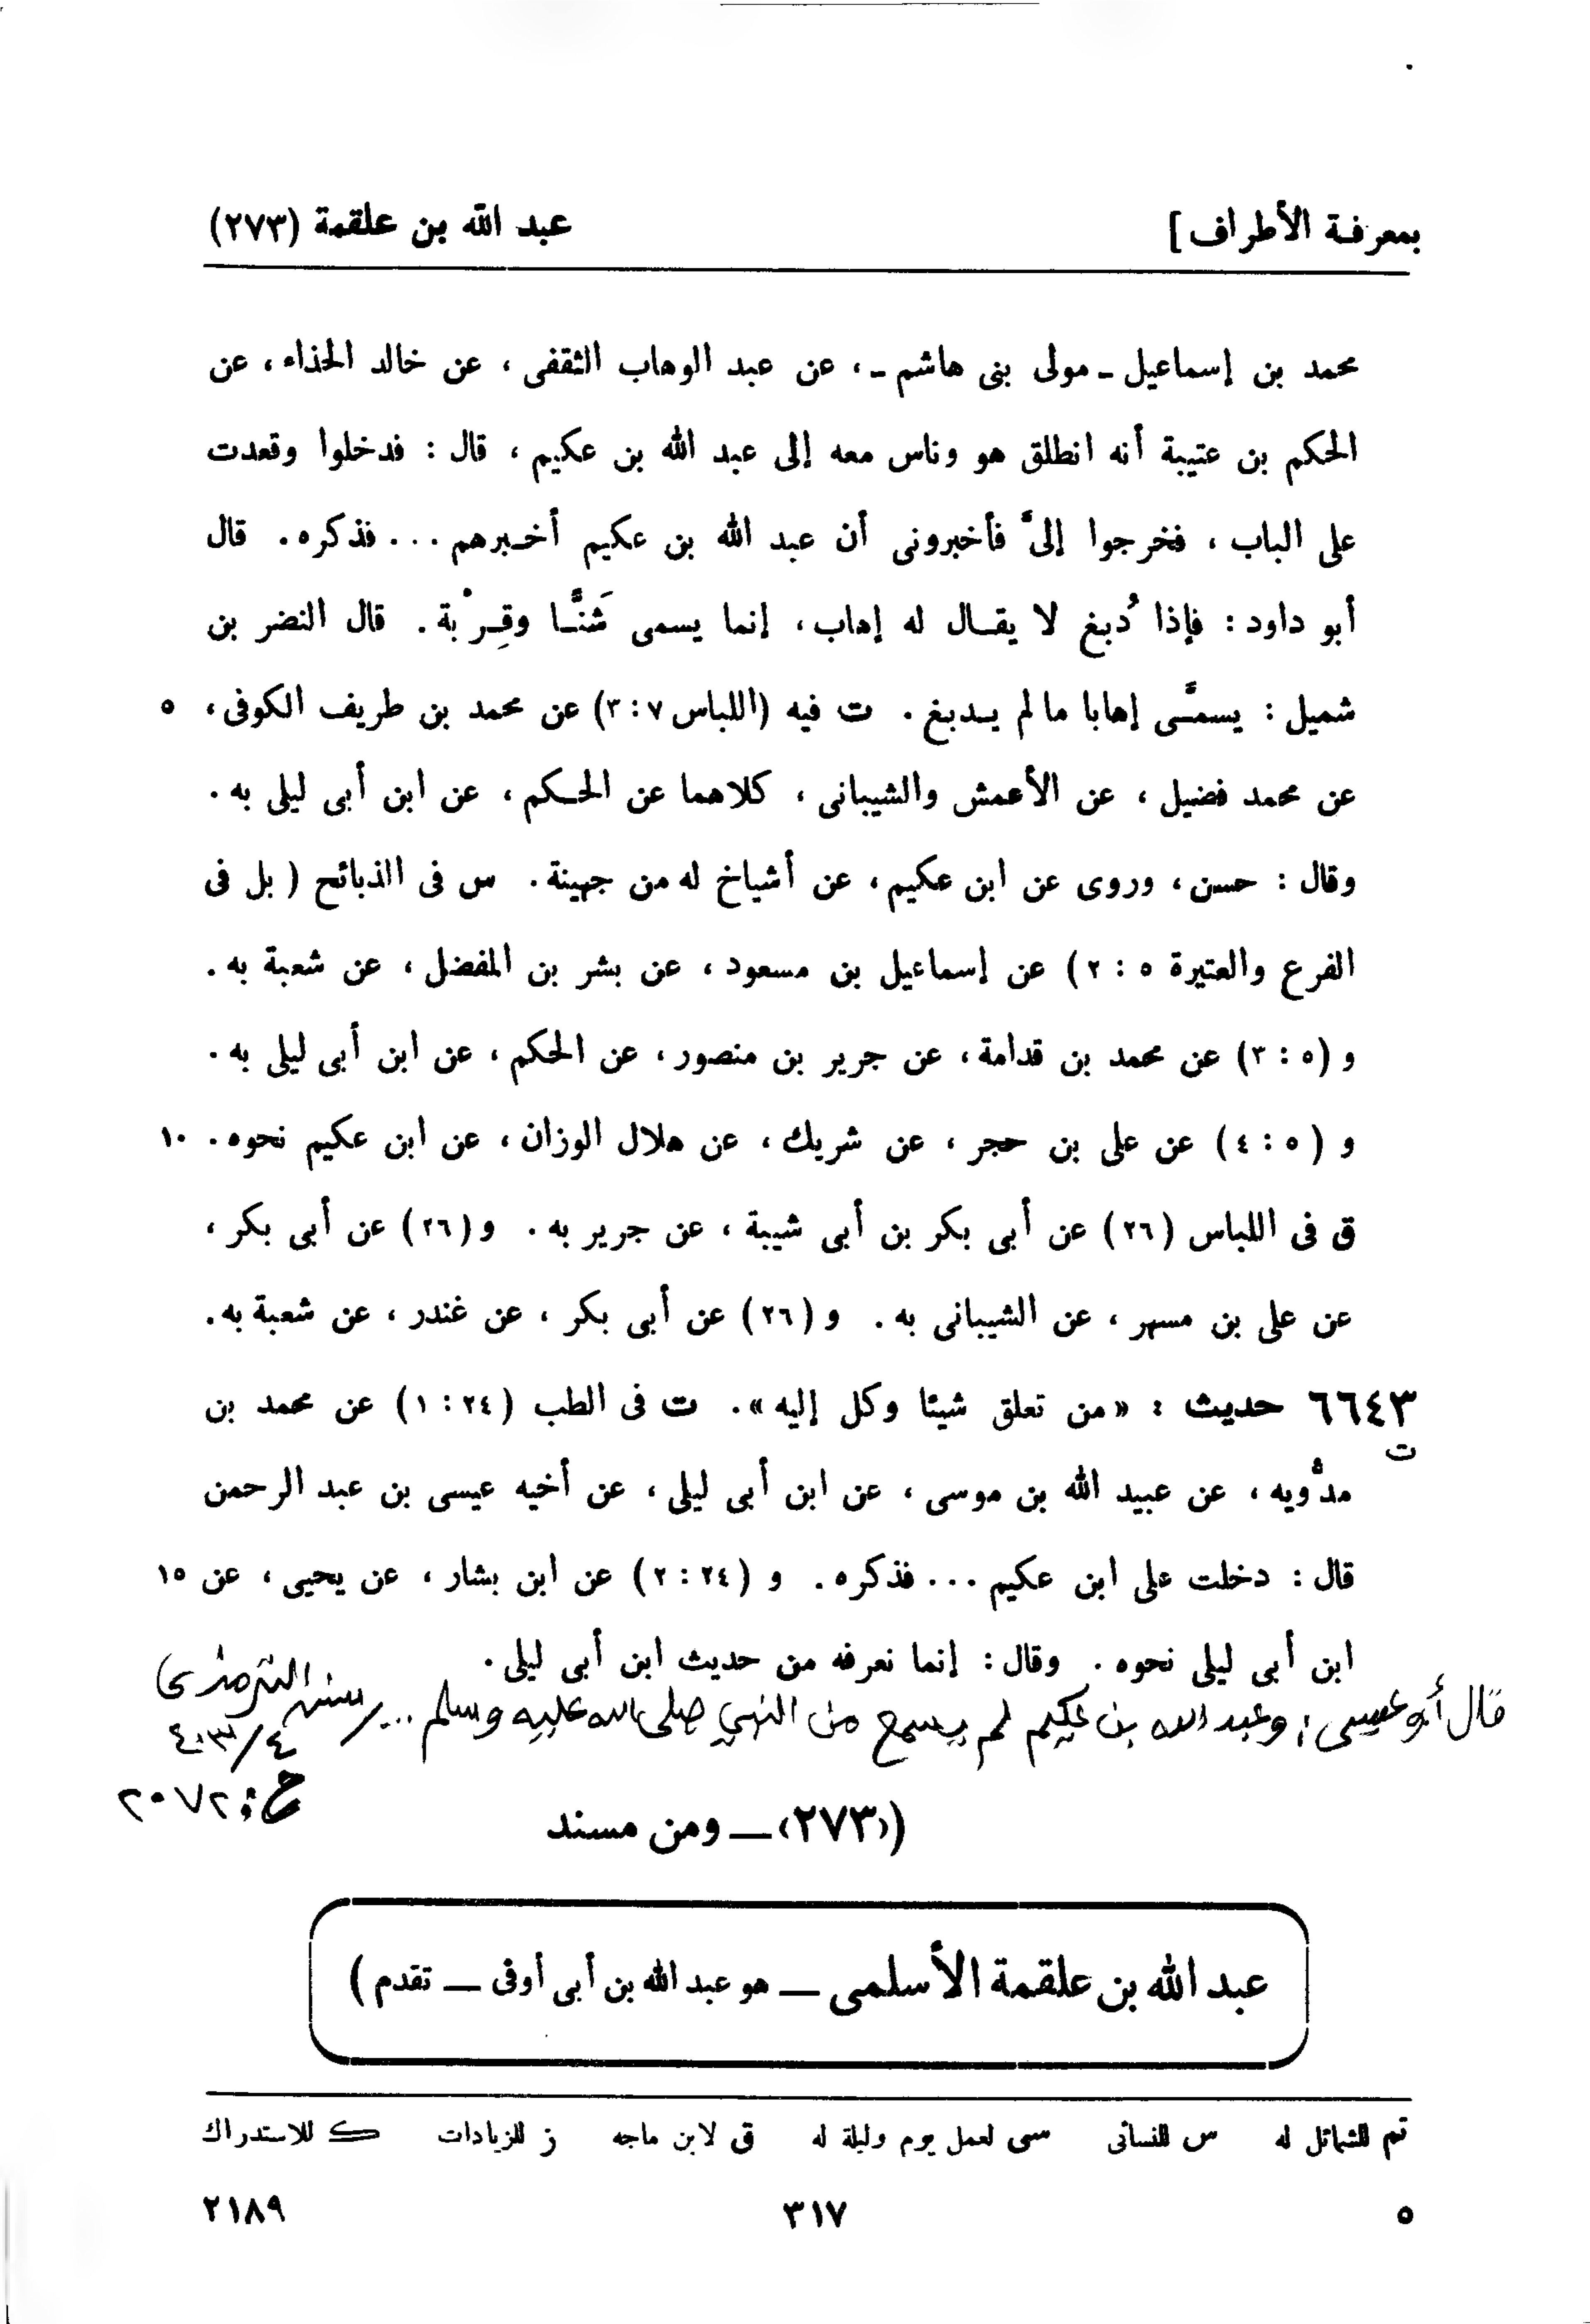 بمعرفة الأطراف ] عبد الله بن علقمة (٢٧٣)
محمد بن إسماعيل ـ مولى بنى هاشم ـ ، عن عبد الوهاب الثقفى ، عن خالد الحذاء ، عن
الحكم بن عتيبة أنه انطلق هو وناس معه إلى عبد الله بن عكيم ، قال : فدخلوا وقعدت
على الباب ، فخرجوا إلىَّ فأخبرونى أن عبد الله بن عكيم أخـبرهم ... فذكره . قال
أبو داود : فإذا دُبغ لا يقـال له إهاب ، إنما يسمى شَنًّـا وقِـرْبة . قال النضر بن
شميل : يسمـَّى إهابا ما لم يـدبغ . ت فيه (اللباس ٧ : ٣) عن محمد بن طريف الكوفى ، ٥
عن محمد فضيل ، عن الأعمش والشيبانى ، كلاهما عن الحـكم ، عن ابن أبى ليلى به .
وقال : حسن ، وروى عن ابن عكيم ، عن أشياخ له من جهينة . س فى الذبائح ( بل فى
الفرع والعتيرة ٥ : ٢) عن إسماعيل بن مسعود ، عن بشر بن المفضل ، عن شعبة به .
و (٥ : ٣) عن محمد بن قدامة ، عن جرير بن منصور ، عن الحكم ، عن ابن أبى ليلى به .
و ( ٥ : ٤ ) عن على بن حجر ، عن شريك ، عن هلال الوزان ، عن ابن عكيم نحوه . ١٠
ق فى اللباس (٢٦ ) عن أبى بكر بن أبى شيبة ، عن جرير به . و (٢٦) عن أبى بكر ،
عن على بن مسهر ، عن الشيبانى به . و (٢٦ ) عن أبى بكر ، عن غندر ، عن شعبة به .
٦٦٤٣ حديث : «من تعلق شيئا وكل إليه» . ت فى الطب (٢٤ : ١) عن محمد بن
ت
مدُّويه ، عن عبيد الله بن موسى ، عن ابن أبى ليلى ، عن أخيه عيسى بن عبد الرحمن
قال : دخلت على ابن عكيم ... فذكره . و (٢٤ : ٢) عن ابن بشار ، عن يحيى ، عن ١٥
ابن أبى ليلى نحوه . وقال : إنما نعرفه من حديث ابن أبى ليلى .
قال أبو عيسى : وعبد الله بن عكيم لم يسمع من النبي صلى الله عليه وسلم .../ سنن الترمذى
٤/٤٠٣
ح : ٢٠٧٢
(‹٢٧٣› ــ ومن مسند
عبد الله بن علقمة الأسلمى ــ هو عبد الله بن أبى أوفى ــ تقدم )
تم للشمائل له س للنسائى سى لعمل يوم وليلة له ق لابن ماجه ز للزيادات ك للاستدراك
٥ ٣١٧ ٢١٨٩